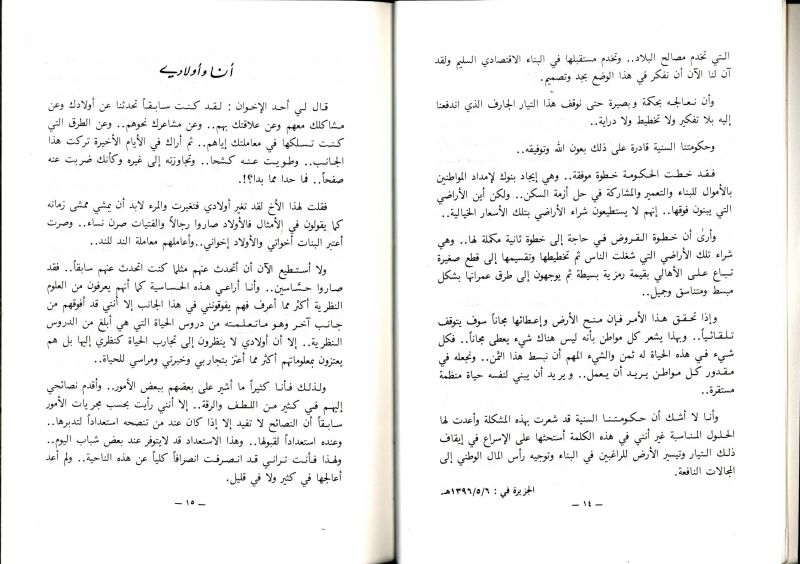 التي تخدم مصالح البلاد.. وتخدم مستقبلها في البناء الاقتصادي السليم ولقد
آن لنا الآن أن نفكر في هذا الوضع بجد وتصميم.
وأن نعالجه بحكمة وبصيرة حتى نوقف هذا التيار الجارف الذي اندفعنا
إليه بلا تفكير ولا تخطيط ولا دراية..
وحكومتنا السنية قادرة على ذلك بعون الله وتوفيقه..
فقد خطت الحكومة خطوة موفقة.. وهي إيجاد بنوك لإمداد المواطنين
بالأموال للبناء والتعمير والمشاركة في حل أزمة السكن.. ولكن أين الأراضي
التي يبنون فوقها.. إنهم لا يستطيعون شراء الأراضي بتلك الأسعار الخيالية..
وأرى أن خطوة القروض في حاجة إلى خطوة ثانية مكملة لها.. وهي
شراء تلك الأراضي التي شغلت الناس ثم تخطيطها وتقسيمها إلى قطع صغيرة
تباع على الأهالي بقيمة رمزية بسيطة ثم يوجهون إلى طرق عمرانها بشكل
مبسط ومتناسق وجميل..
وإذا تحقق هذا الأمر فإن منح الأرض وإعطائها مجاناً سوف يتوقف
تلقائياً.. وبهذا يشعر كل مواطن بأنه ليس هناك شيء يعطى مجاناً.. فكل
شيء في هذه الحياة له ثمن والشيء المهم أن نبسط هذا الثمن.. ونجعله في
مقدور كل مواطن يريد أن يعمل.. ويريد أن يبني لنفسه حياة منظمة
مستقرة..
وأنا لا أشك أن حكومتنا السنية قد شعرت بهذه المشكلة وأعدت لها
الحلول المناسبة غير أنني في هذه الكلمة أستحثها على الإسراع في إيقاف
ذلك التيار وتيسير الأرض للراغبين في البناء وتوجيه رأس المال الوطني إلى
المجالات النافعة.
الجزيرة في : ١٣٩٦/٥/٦هـ
— ١٤ —
أنا وأولادي
قال لي أحد الإخوان : لقد كنت سابقاً تحدثنا عن أولادك وعن
مشاكلك معهم وعن علاقتك بهم.. وعن مشاعرك نحوهم.. وعن الطرق التي
كنت تسلكها في معاملتك إياهم.. ثم أراك في الأيام الأخيرة تركت هذا
الجانب.. وطويت عنه كشحا.. وتجاوزته إلى غيره وكأنك ضربت عنه
صفحاً.. فما حدا مما بدا؟!.
فقلت لهذا الأخ لقد تغير أولادي فتغيرت والمرء لابد أن يمشي ممشى زمانه
كما يقولون في الأمثال فالأولاد صاروا رجالاً والفتيات صرن نساء.. وصرت
أعتبر البنات أخواتي والأولاد إخواني.. وأعاملهم معاملة الند للند..
ولا أستطيع الآن أن أتحدث عنهم مثلما كنت اتحدث عنهم سابقاً.. فقد
صاروا حسّاسين.. وأنا أراعي هذه الحساسية كما أنهم يعرفون من العلوم
النظرية أكثر مما أعرف فهم يفوقونني في هذا الجانب إلا أنني قد أفوقهم من
جانب آخر وهو ماتعلمته من دروس الحياة التي هي أبلغ من الدروس
النظرية.. إلا أن أولادي لا ينظرون إلى تجارب الحياة كنظري إليها بل هم
يعتزون بمعلوماتهم أكثر مما أعتز بتجاربي وخبرتي ومراسي للحياة..
ولذلك فأنا كثيراً ما أشير على بعضهم ببعض الأمور.. وأقدم نصائحي
إليهم في كثير من اللطف والرقة.. إلا أنني رأيت بحسب مجريات الأمور
سابقاً أن النصائح لا تفيد إلا إذا كان عند من تنصحه استعداداً لتدبرها..
وعنده استعداداً لقبولها.. وهذا الاستعداد قد لايتوفر عند بعض شباب اليوم..
ولهذا فأنت تراني قد انصرفت انصرافاً كلياً عن هذه الناحية.. ولم أعد
أعالجها في كثير ولا في قليل.
— ١٥ —